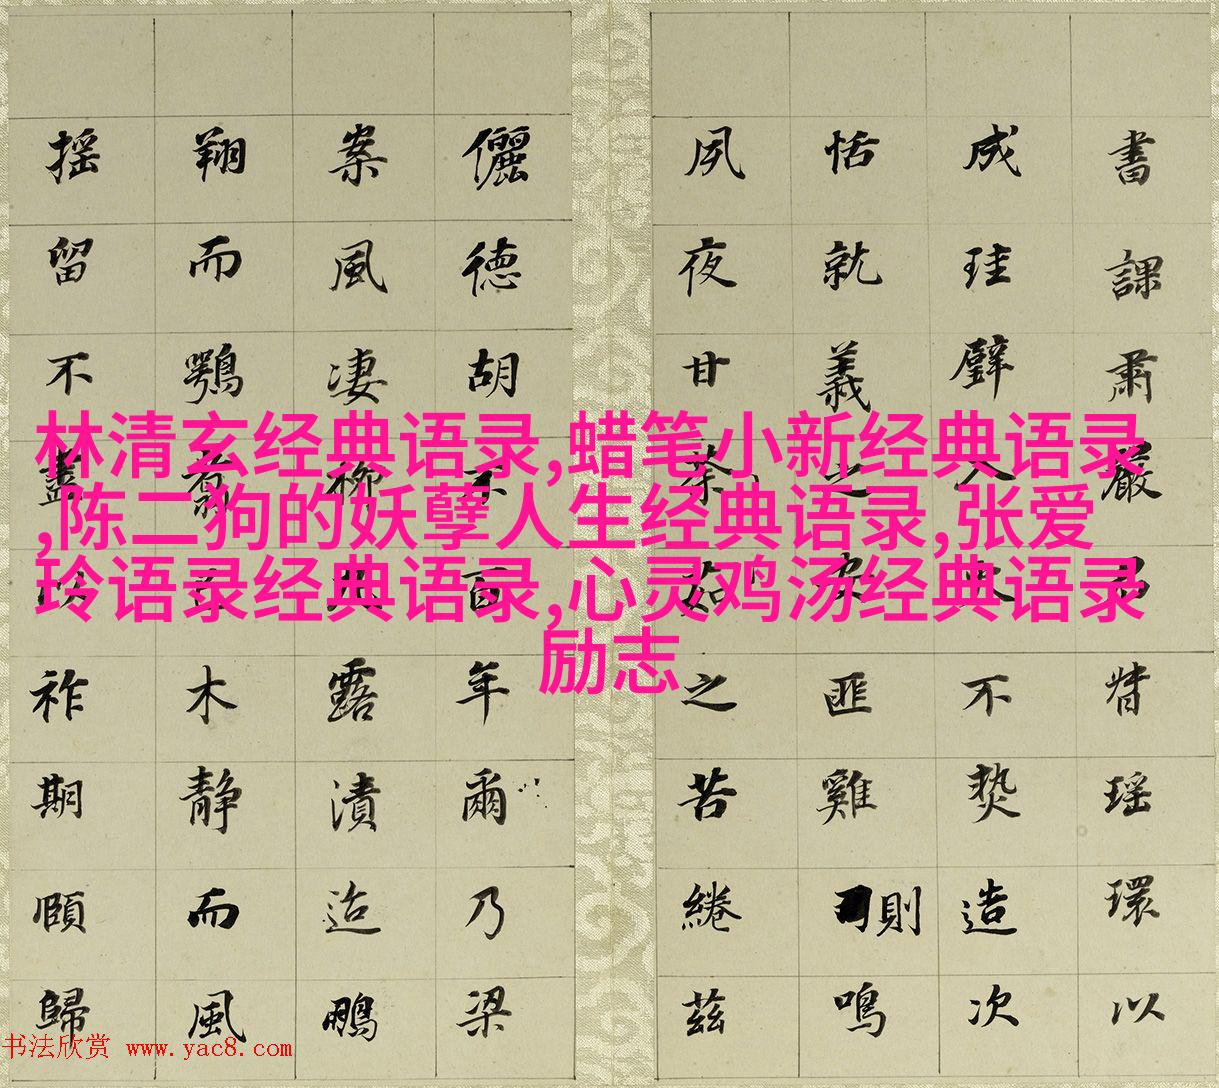 林清玄经典语录,蜡笔小新经典语录
,陈二狗的妖孽人生经典语录,张爱
玲语录经典语录,心灵鸡汤经典语录
励志
書課肅嚴瑤環以
成珪璧人不造次
恬就義之匪雞則鳴
夙夜甘荼茹之苦綣茲
儷德胡不百年爾乃梁
案風凄柳露漬迨鵬
翔而鶚翥木靜而風
搖留不盡以祚期頤歸
书法欣赏 www.yac8.com